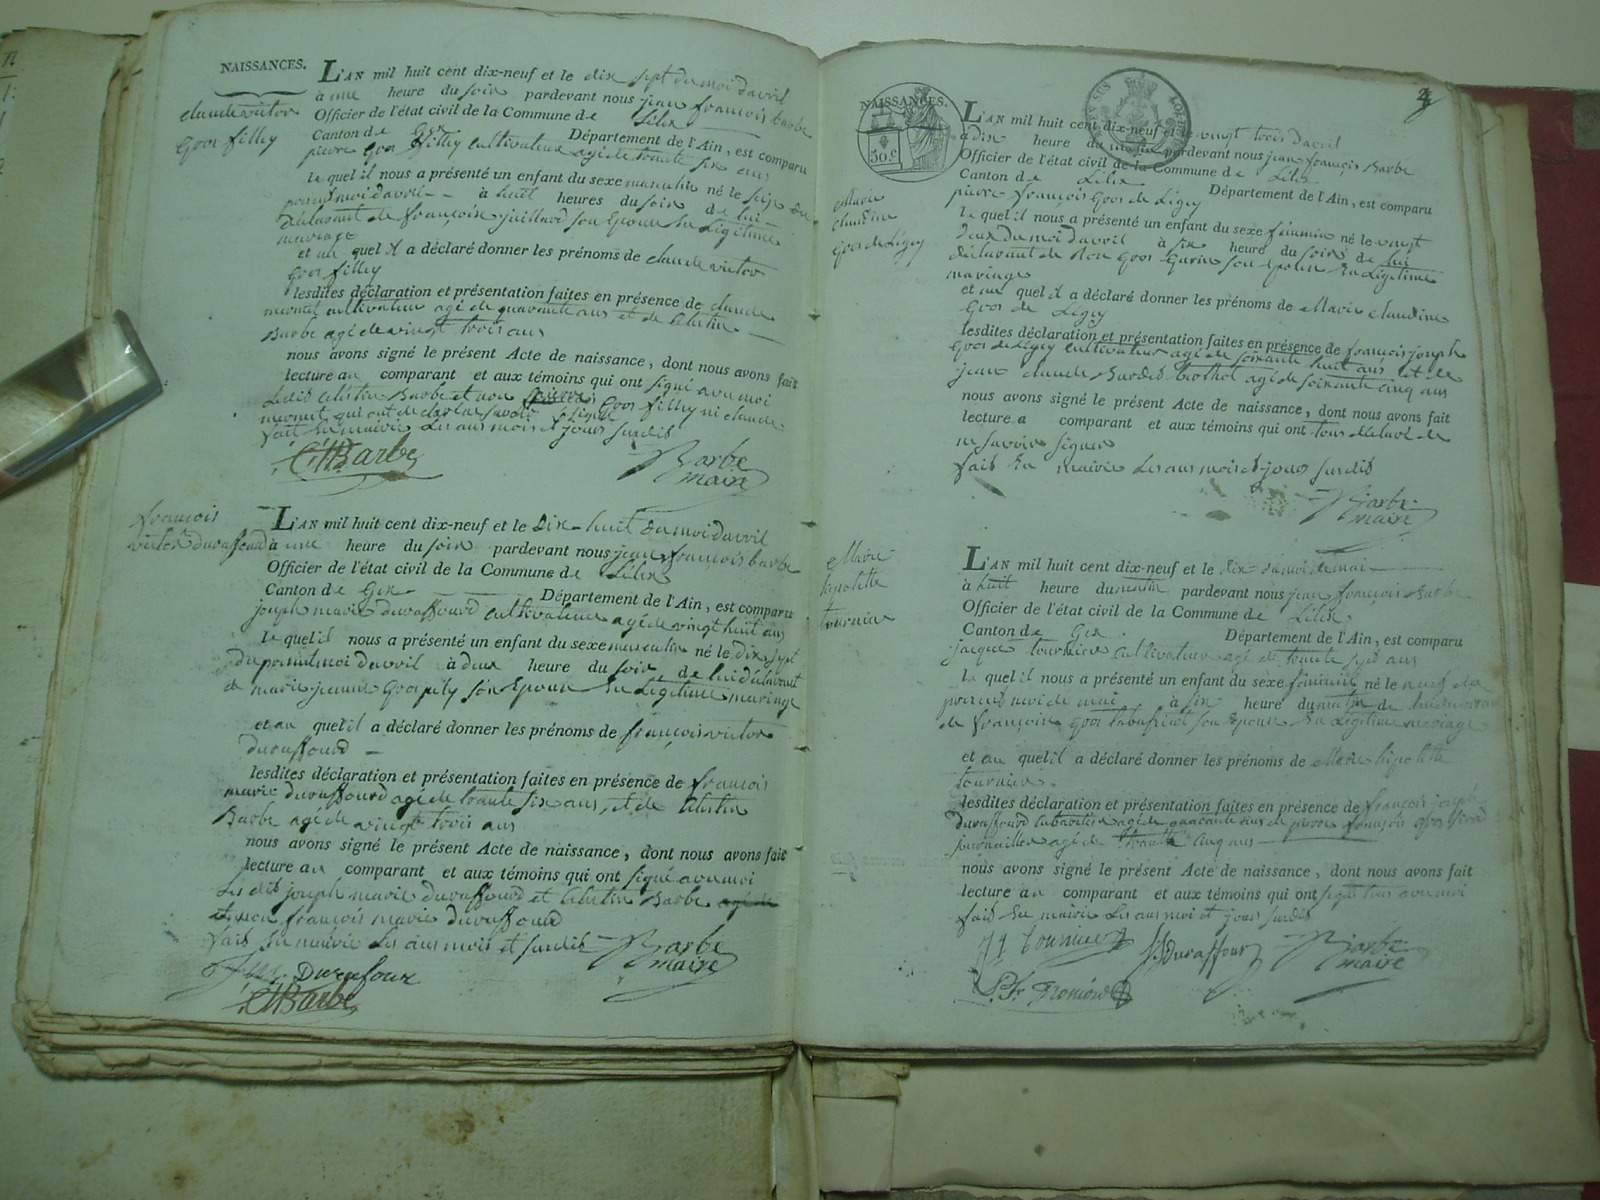 NAISSANCES.
claude victor
gros filley
L'AN mil huit cent dix-neuf et le dix sept du moi davril
à une heure du soir pardevant nous jean françois barbe
Officier de l'état civil de la Commune de Lélex
Canton de Gex Département de l'Ain, est comparu
pierre gros filley cultivateur agé de trante six ans
le quel il nous a présenté un enfant du sexe masculin né le seize du
présent moi davril à huit heures du soir de lui
déclarant de françoise juillard son épouse en Légitime
mariage
et au quel il a déclaré donner les prénoms de claude victor
gros filley
lesdites déclaration et présentation faites en présence de claude
cultivateur agé de quarante ans et de Célestin
Barbe agé de vingt trois ans
nous avons signé le présent Acte de naissance, dont nous avons fait
lecture au comparant et aux témoins qui ont signé avec moi
Ledit Célestin Barbe et non gros filley ni claude
qui ont déclaré savoir signer
fait En mairie Les ans mois et jours surdit
CBarbe
Barbe
maire
françois
victor duraffourd
L'AN mil huit cent dix-neuf et le Dix-huit du moi davril
à une heure du soir pardevant nous jean françois barbe
Officier de l'état civil de la Commune de Lélex
Canton de Gex Département de l'Ain, est comparu
joseph marie duraffourd cultivateur agé de vingt huit ans
le quel il nous a présenté un enfant du sexe masculin né le Dix sept
du présent moi davril à deux heure du soir de lui déclarant
de marie jeanne son Epouse En Légitime mariage
et au quel il a déclaré donner les prénoms de françois victor
duraffourd
lesdites déclaration et présentation faites en présence de françois
marie duraffourd agé de trante six ans, et de Célestin
Barbe agé de vingt trois ans
nous avons signé le présent Acte de naissance, dont nous avons fait
lecture au comparant et aux témoins qui ont signé avec moi
Les dit joseph marie duraffourd et Célestin Barbe
et non françois marie duraffourd
fait En mairie Les ans mois et surdit
Barbe
maire
Durafour
CBarbe
NAISSANCES.
50 c
Marie
claudine
gros de Légey
L'AN mil huit cent dix-neuf et le vingt trois davril
à dix heure du matin pardevant nous jean françois Barbe
Officier de l'état civil de la Commune de Lélex
Canton de Lélex Département de l'Ain, est comparu
pierre françois gros de Légey
le quel il nous a présenté un enfant du sexe féminin né le vingt
deux du moi davril à six heure du soir de lui
déclarant de gros son épouse En Légitime
mariage
et au quel il a déclaré donner les prénoms de Marie claudine
gros de Légey
lesdites déclaration et présentation faites en présence de françois joseph
gros de Légey cultivateur agé de soixante huit ans et de
jean claude agé de soixante cinq ans
nous avons signé le présent Acte de naissance, dont nous avons fait
lecture a comparant et aux témoins qui ont tous déclaré de
ne savoir signer
fait En mairie Les ans mois et jour surdit
Barbe
maire
Marie
hipolitte
tournier
L'AN mil huit cent dix-neuf et le dix du moi de mai
à huit heure du matin pardevant nous jean françois Barbe
Officier de l'état civil de la Commune de Lélex
Canton de Gex Département de l'Ain, est comparu
jacque tournier cultivateur agé de trante sept ans
le quel il nous a présenté un enfant du sexe féminin né le neuf du
présent moi de mai à six heure du matin de lui déclarant
de françoise gros son épouse En Légitime mariage
et au quel il a déclaré donner les prénoms de Marie hipolitte
tournier
lesdites déclaration et présentation faites en présence de françois joseph
duraffourd agé de quarante ans et pierre françois
agé de trante cinq ans
nous avons signé le présent Acte de naissance, dont nous avons fait
lecture au comparant et aux témoins qui ont signé tous avec moi
fait En mairie Les ans moi et jour surdit
tournier
Duraffour
Barbe
maire